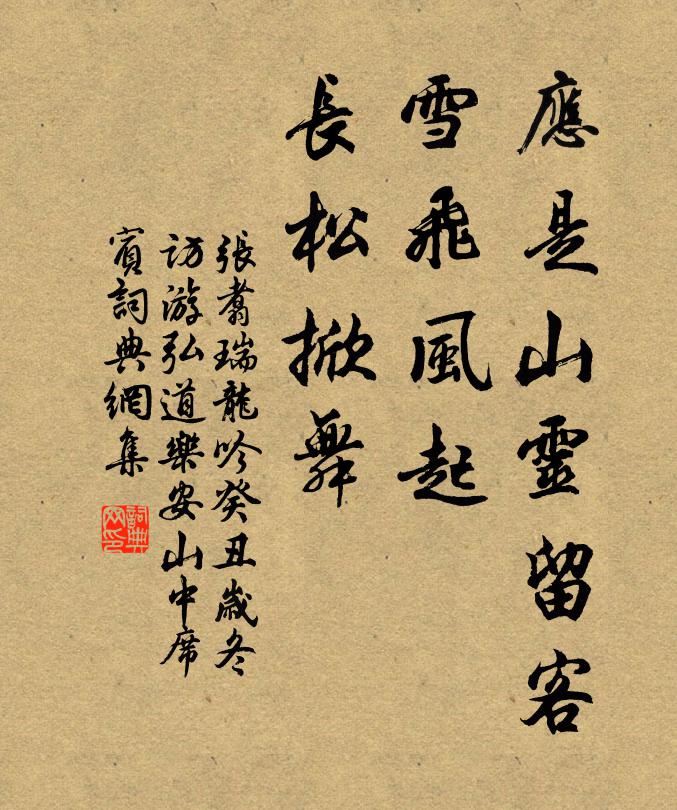 應是山靈留客
雪飛風起
長松掀舞
張翥瑞龍吟癸丑歲冬
訪游弘道樂安山中席
賓詞典網集
詞典网印